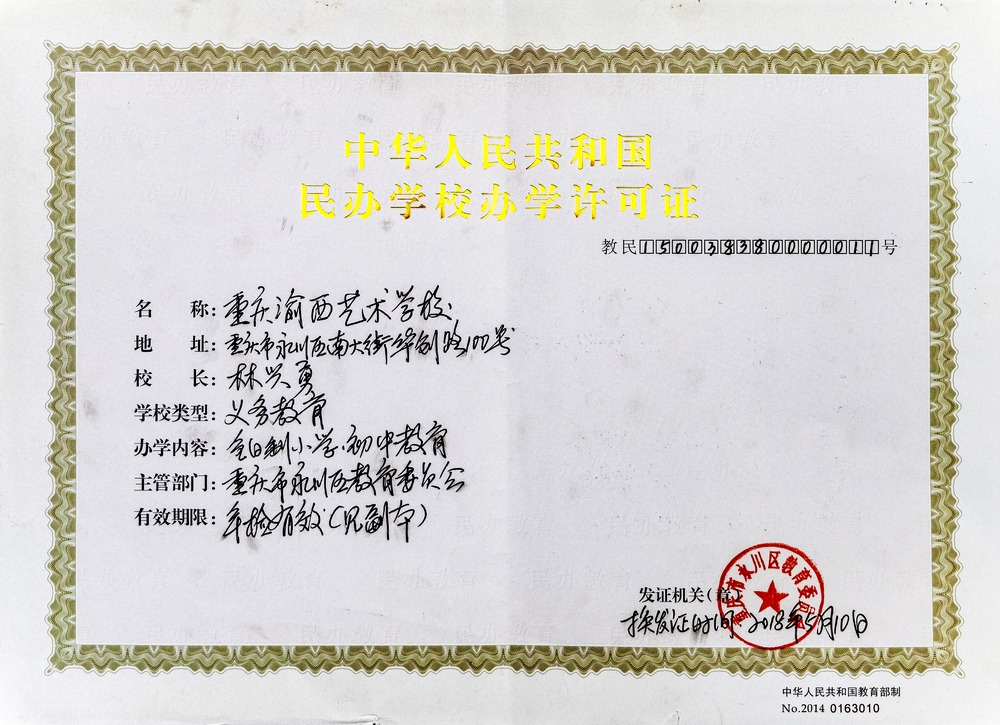 中华人民共和国
民办学校办学许可证
教民150038380000011号
名称:重庆渝西艺术学校
地址:重庆市永川区南大街华创路100号
校长:林兴勇
学校类型:义务教育
办学内容:全日制小学、初中教育
主管部门:重庆市永川区教育委员会
有效期限:年检有效(见副本)
发证机关(章)
重庆市永川区教育委员会
换发证时间:2018年5月10日
中华人民共和国教育部制
No.2014 0163010